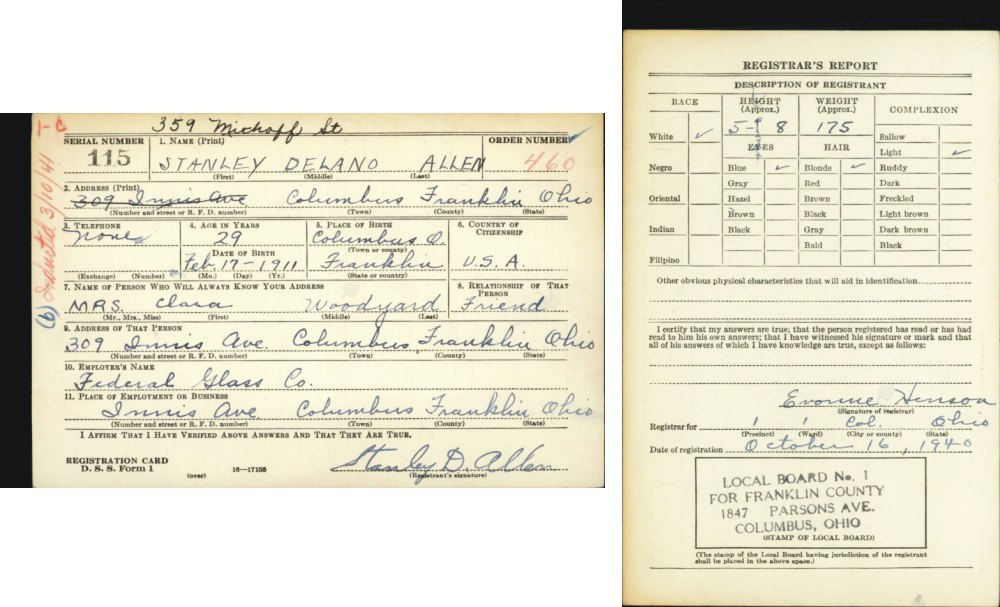 359 Mithoff St
1-C
(6) Inducted 3/10/41
SERIAL NUMBER
115
1. NAME (Print)
STANLEY DELANO ALLEN
(First) (Middle) (Last)
ORDER NUMBER
460
2. ADDRESS (Print)
309 Innis Ave Columbus Franklin Ohio
(Number and street or R. F. D. number) (Town) (County) (State)
3. TELEPHONE
None
(Exchange) (Number)
4. AGE IN YEARS
29
DATE OF BIRTH
Feb. 17-1911
(Mo.) (Day) (Yr.)
5. PLACE OF BIRTH
Columbus O.
(Town or county)
Franklin
(State or country)
6. COUNTRY OF CITIZENSHIP
U.S.A.
7. NAME OF PERSON WHO WILL ALWAYS KNOW YOUR ADDRESS
MRS. Clara Woodyard
(Mr., Mrs., Miss) (First) (Middle) (Last)
8. RELATIONSHIP OF THAT PERSON
Friend
9. ADDRESS OF THAT PERSON
309 Innis Ave. Columbus Franklin Ohio
(Number and street or R. F. D. number) (Town) (County) (State)
10. EMPLOYER'S NAME
Federal Glass Co.
11. PLACE OF EMPLOYMENT OR BUSINESS
Innis Ave Columbus Franklin Ohio
(Number and street or R. F. D. number) (Town) (County) (State)
I AFFIRM THAT I HAVE VERIFIED ABOVE ANSWERS AND THAT THEY ARE TRUE.
REGISTRATION CARD
D. S. S. Form 1
(over)
16-17105
Stanley D. Allen
(Registrant's signature)
REGISTRAR'S REPORT
DESCRIPTION OF REGISTRANT
RACE
White
Negro
Oriental
Indian
Filipino
HEIGHT
(Approx.)
5-8
WEIGHT
(Approx.)
175
COMPLEXION
EYES
Blue
Gray
Hazel
Brown
Black
HAIR
Blonde
Red
Brown
Black
Gray
Bald
Sallow
Light
Ruddy
Dark
Freckled
Light brown
Dark brown
Black
Other obvious physical characteristics that will aid in identification
I certify that my answers are true; that the person registered has read or has had
read to him his own answers; that I have witnessed his signature or mark and that
all of his answers of which I have knowledge are true, except as follows:
Evonne Henson
(Signature of registrar)
Registrar for 1 1 Col. Ohio
(Precinct) (Ward) (City or county) (State)
Date of registration October 16, 1940
LOCAL BOARD No. 1
FOR FRANKLIN COUNTY
1847 PARSONS AVE.
COLUMBUS, OHIO
(STAMP OF LOCAL BOARD)
(The stamp of the Local Board having jurisdiction of the registrant
shall be placed in the above space.)